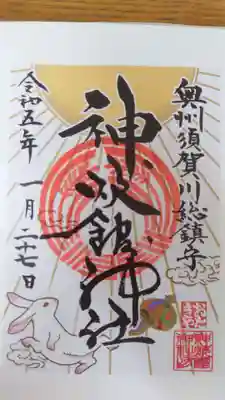 奥州須賀川総鎮守
神炊館神社
令和五年
一月二十七日